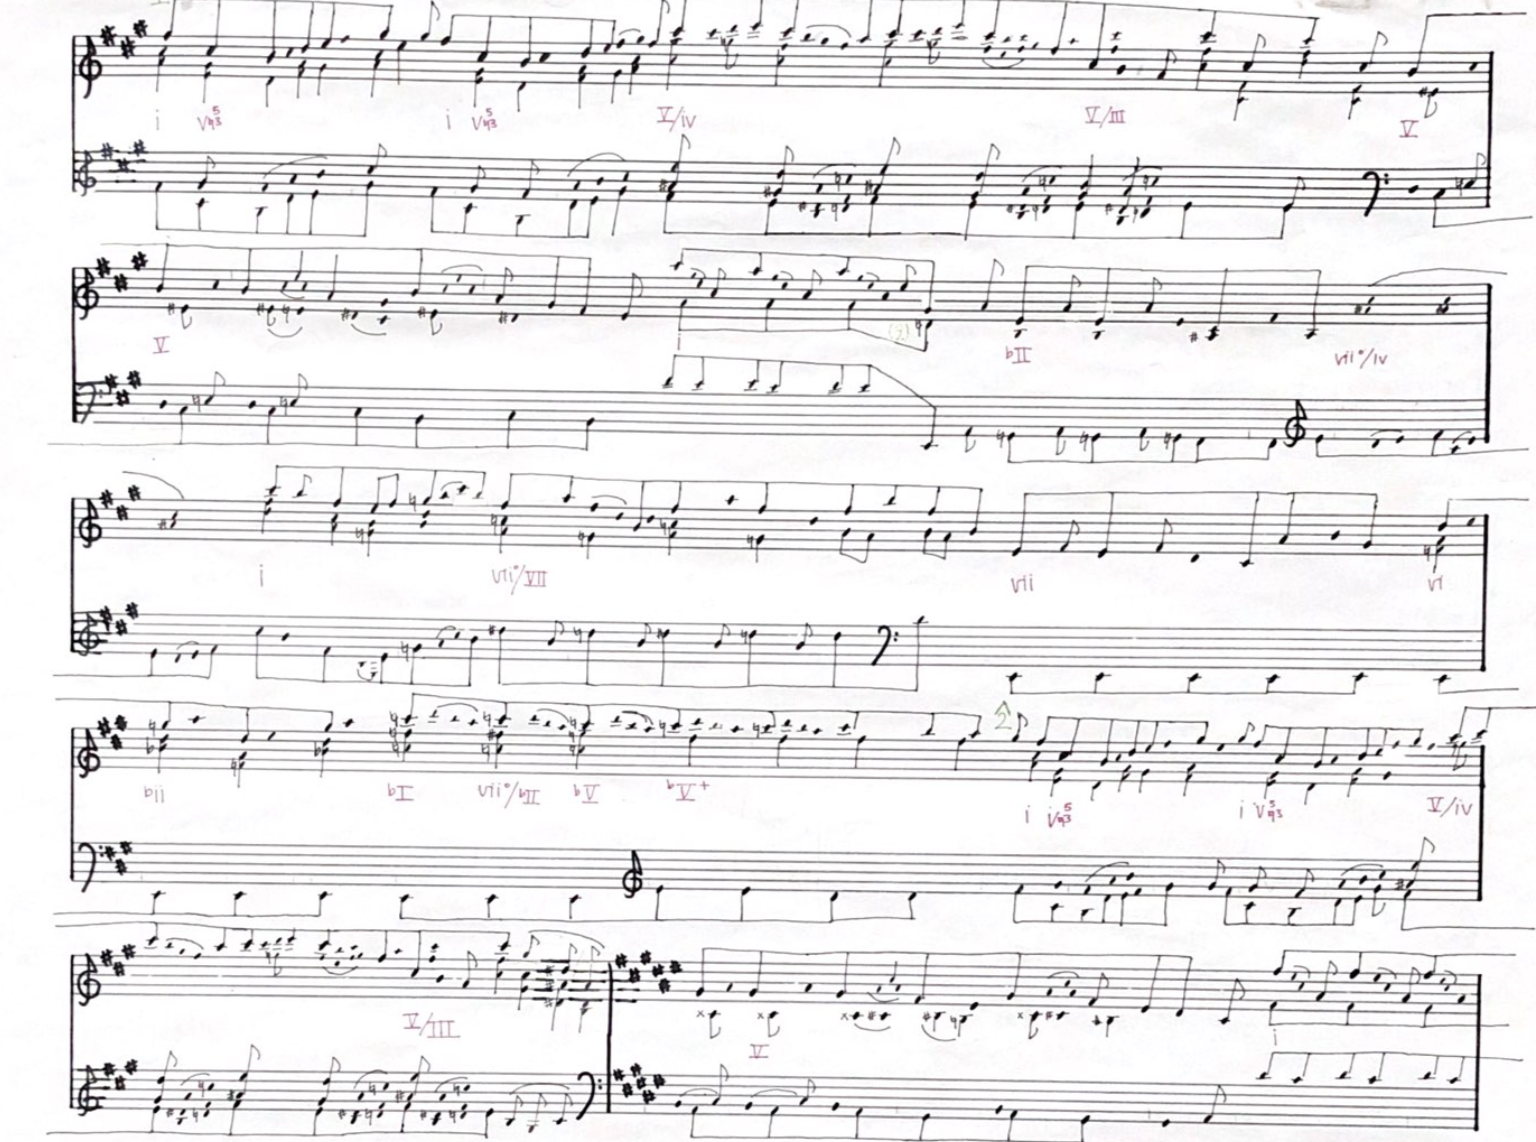 i V5♮3 i V5♮3 V/iv V/III V
V i (9) ♭II vii°/iv
i vii°/VII vii vi
♭ii ♭I vii°/♭II ♭V ♭V+ 2 i V5♮3 i V5♮3 V/iv
V/III V i